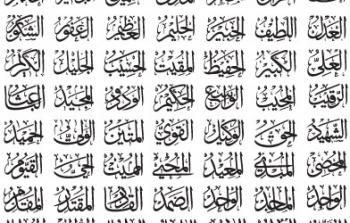 العدل اللطيف الخبير الحليم العظيم الغفور الشكور
العلي الكبير الحفيظ المقيت الحسيب الجليل الكريم
الرقيب المجيب الواسع الحكيم الودود المجيد الباعث
الشهيد الحق الوكيل القوي المتين الولي الحميد
المحصي المبدئ المعيد المحيي المميت الحي القيوم
الواجد الماجد الواحد الصمد القادر المقتدر المقدم